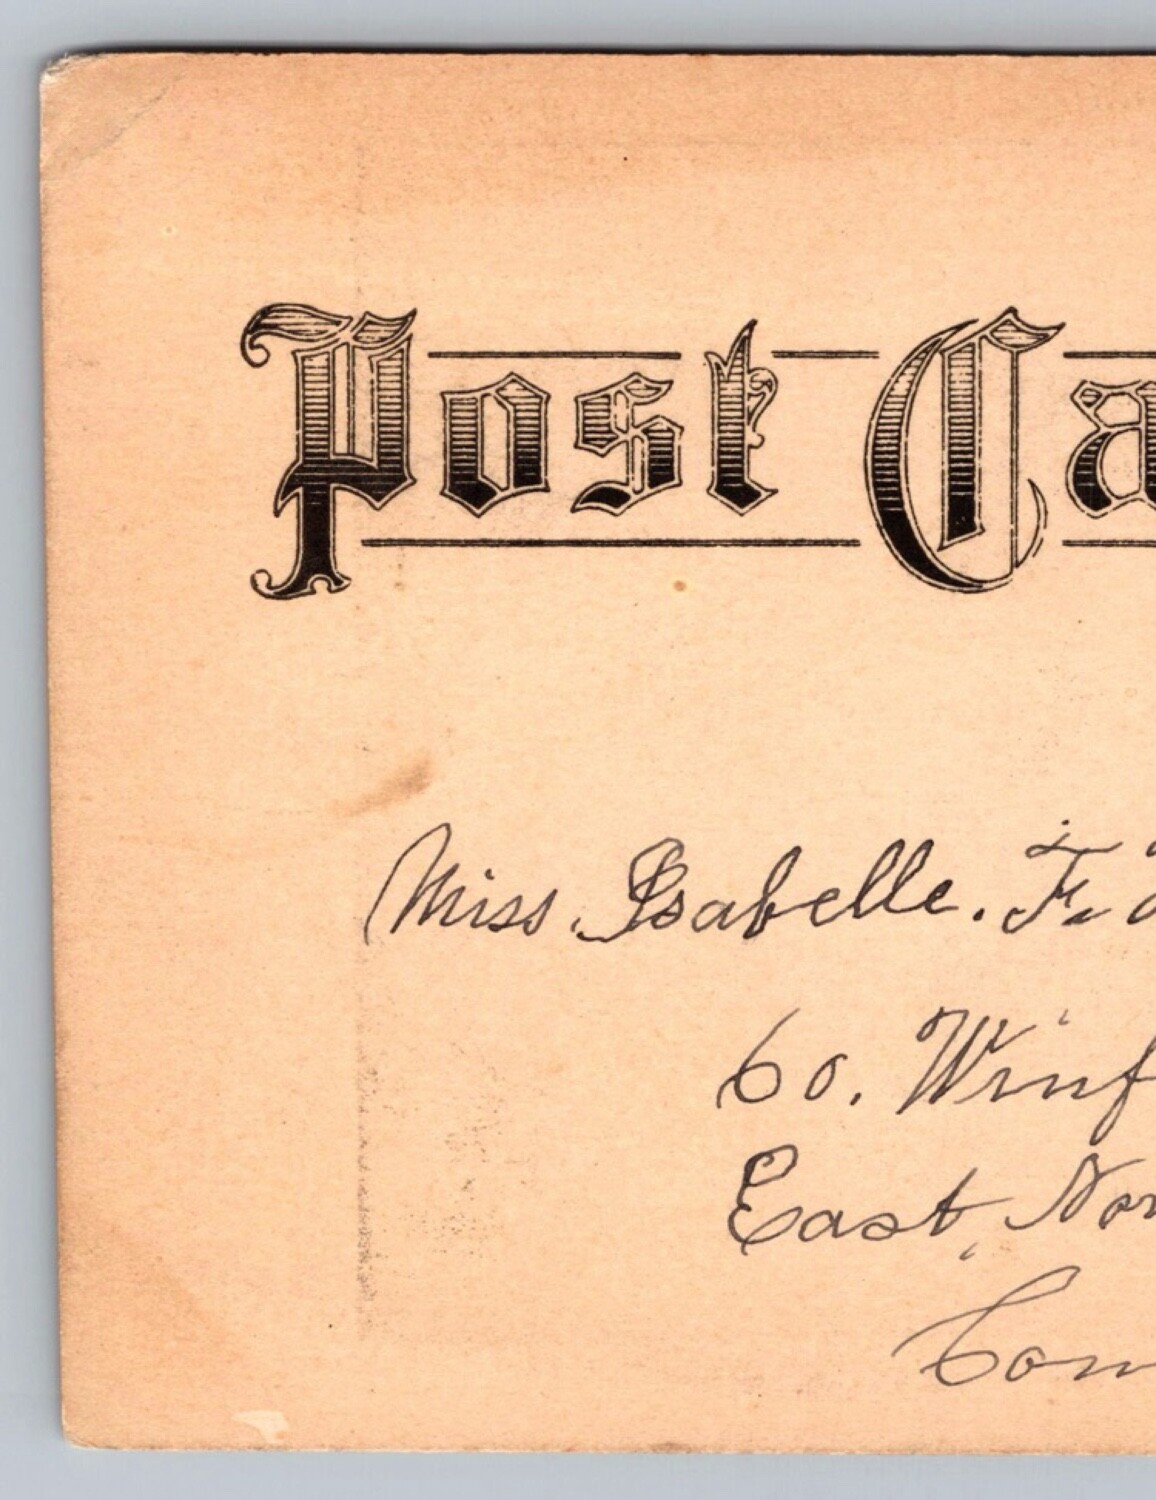 Post Ca
Miss. Isabelle. F.
60. Winf
East, Nor
Conn